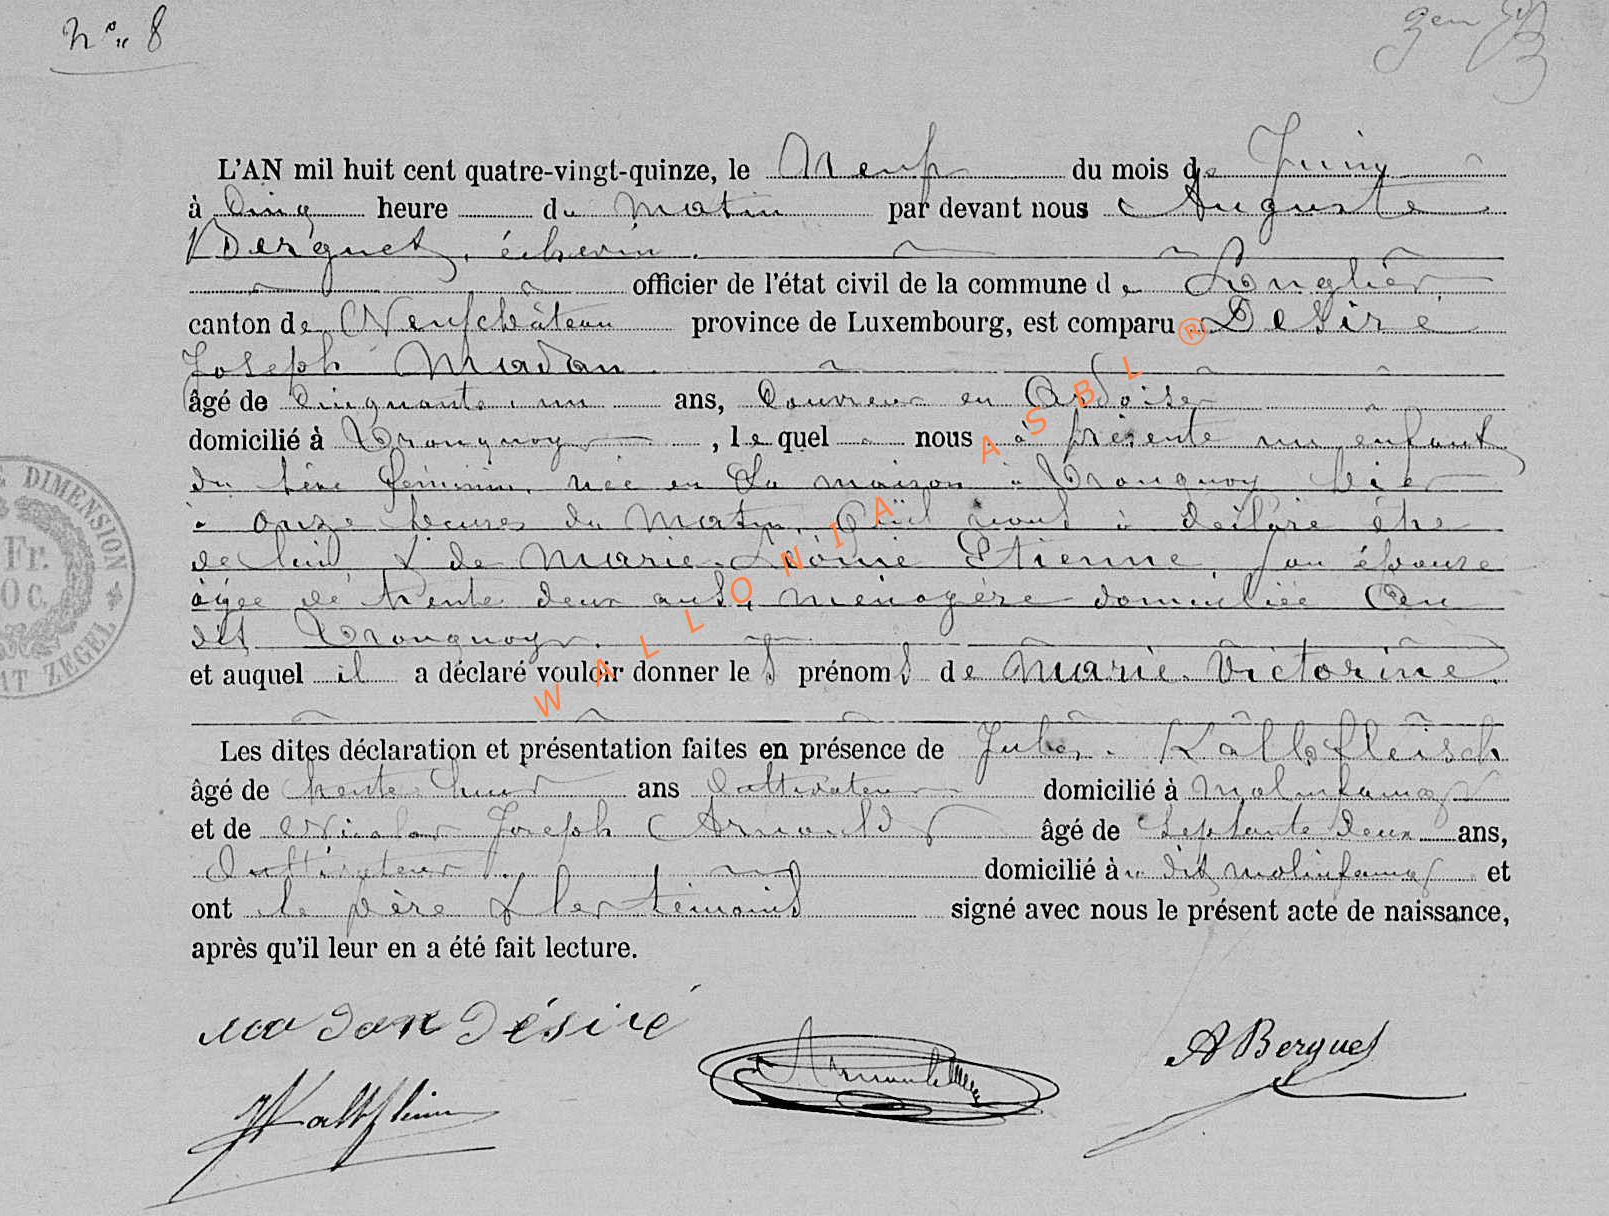 N° 8
L'AN mil huit cent quatre-vingt-quinze, le Neuf du mois de Juin
à Cinq heure du Matin par devant nous Auguste
Berquet, échevin.
officier de l'état civil de la commune de Longlier,
canton de Neufchâteau province de Luxembourg, est comparu Désiré
Joseph Madan
âgé de Cinquante un ans, Couvreur en Ardoises
domicilié à Tronquoy, lequel nous à présenté un enfant
du sèxe féminin, née en Sa maison à Tronquoy hier
à onze heures du Matin, Qu'il nous à déclaré être
de lui & de Marie Léonie Etienne, son épouse
âgée de trente deux ans, ménagère domiciliée Au
dit Tronquoy.
et auquel il a déclaré vouloir donner les prénoms de Marie Victorine
Les dites déclaration et présentation faites en présence de Jules Kalbfleisch
âgé de trente huit ans Cultivateur domicilié à Molinfaing
et de Nicolas Joseph Arnould âgé de Septante deux ans,
Cultivateur domicilié à dit Molinfaing et
ont le père & les témoins signé avec nous le présent acte de naissance,
après qu'il leur en a été fait lecture.
Madan Désiré
A Berquet
JKalbfleisch
Arnould
DIMENSION
Fr.
ZEGEL
WALLONIA ASBL ®